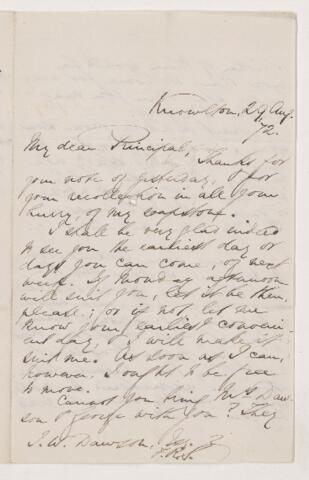 Knowlton, 29 Aug.
72.
My dear Principal, Thanks for
your note of yesterday, & for
your recollection in all your
hurry, of my soapstone.
I shall be very glad indeed
to see you the earliest day or
days you can come, of next
week. If Monday afternoon
will suit you, let it be then,
please; or if not let me
know your earliest conveni-
ent day, & I will make it
suit me. As soon as I can,
however. I ought to be free
to move.
Cannot you bring Mrs Daw-
son & George with you? They
J. W. Dawson, Esq.
F.R.S.